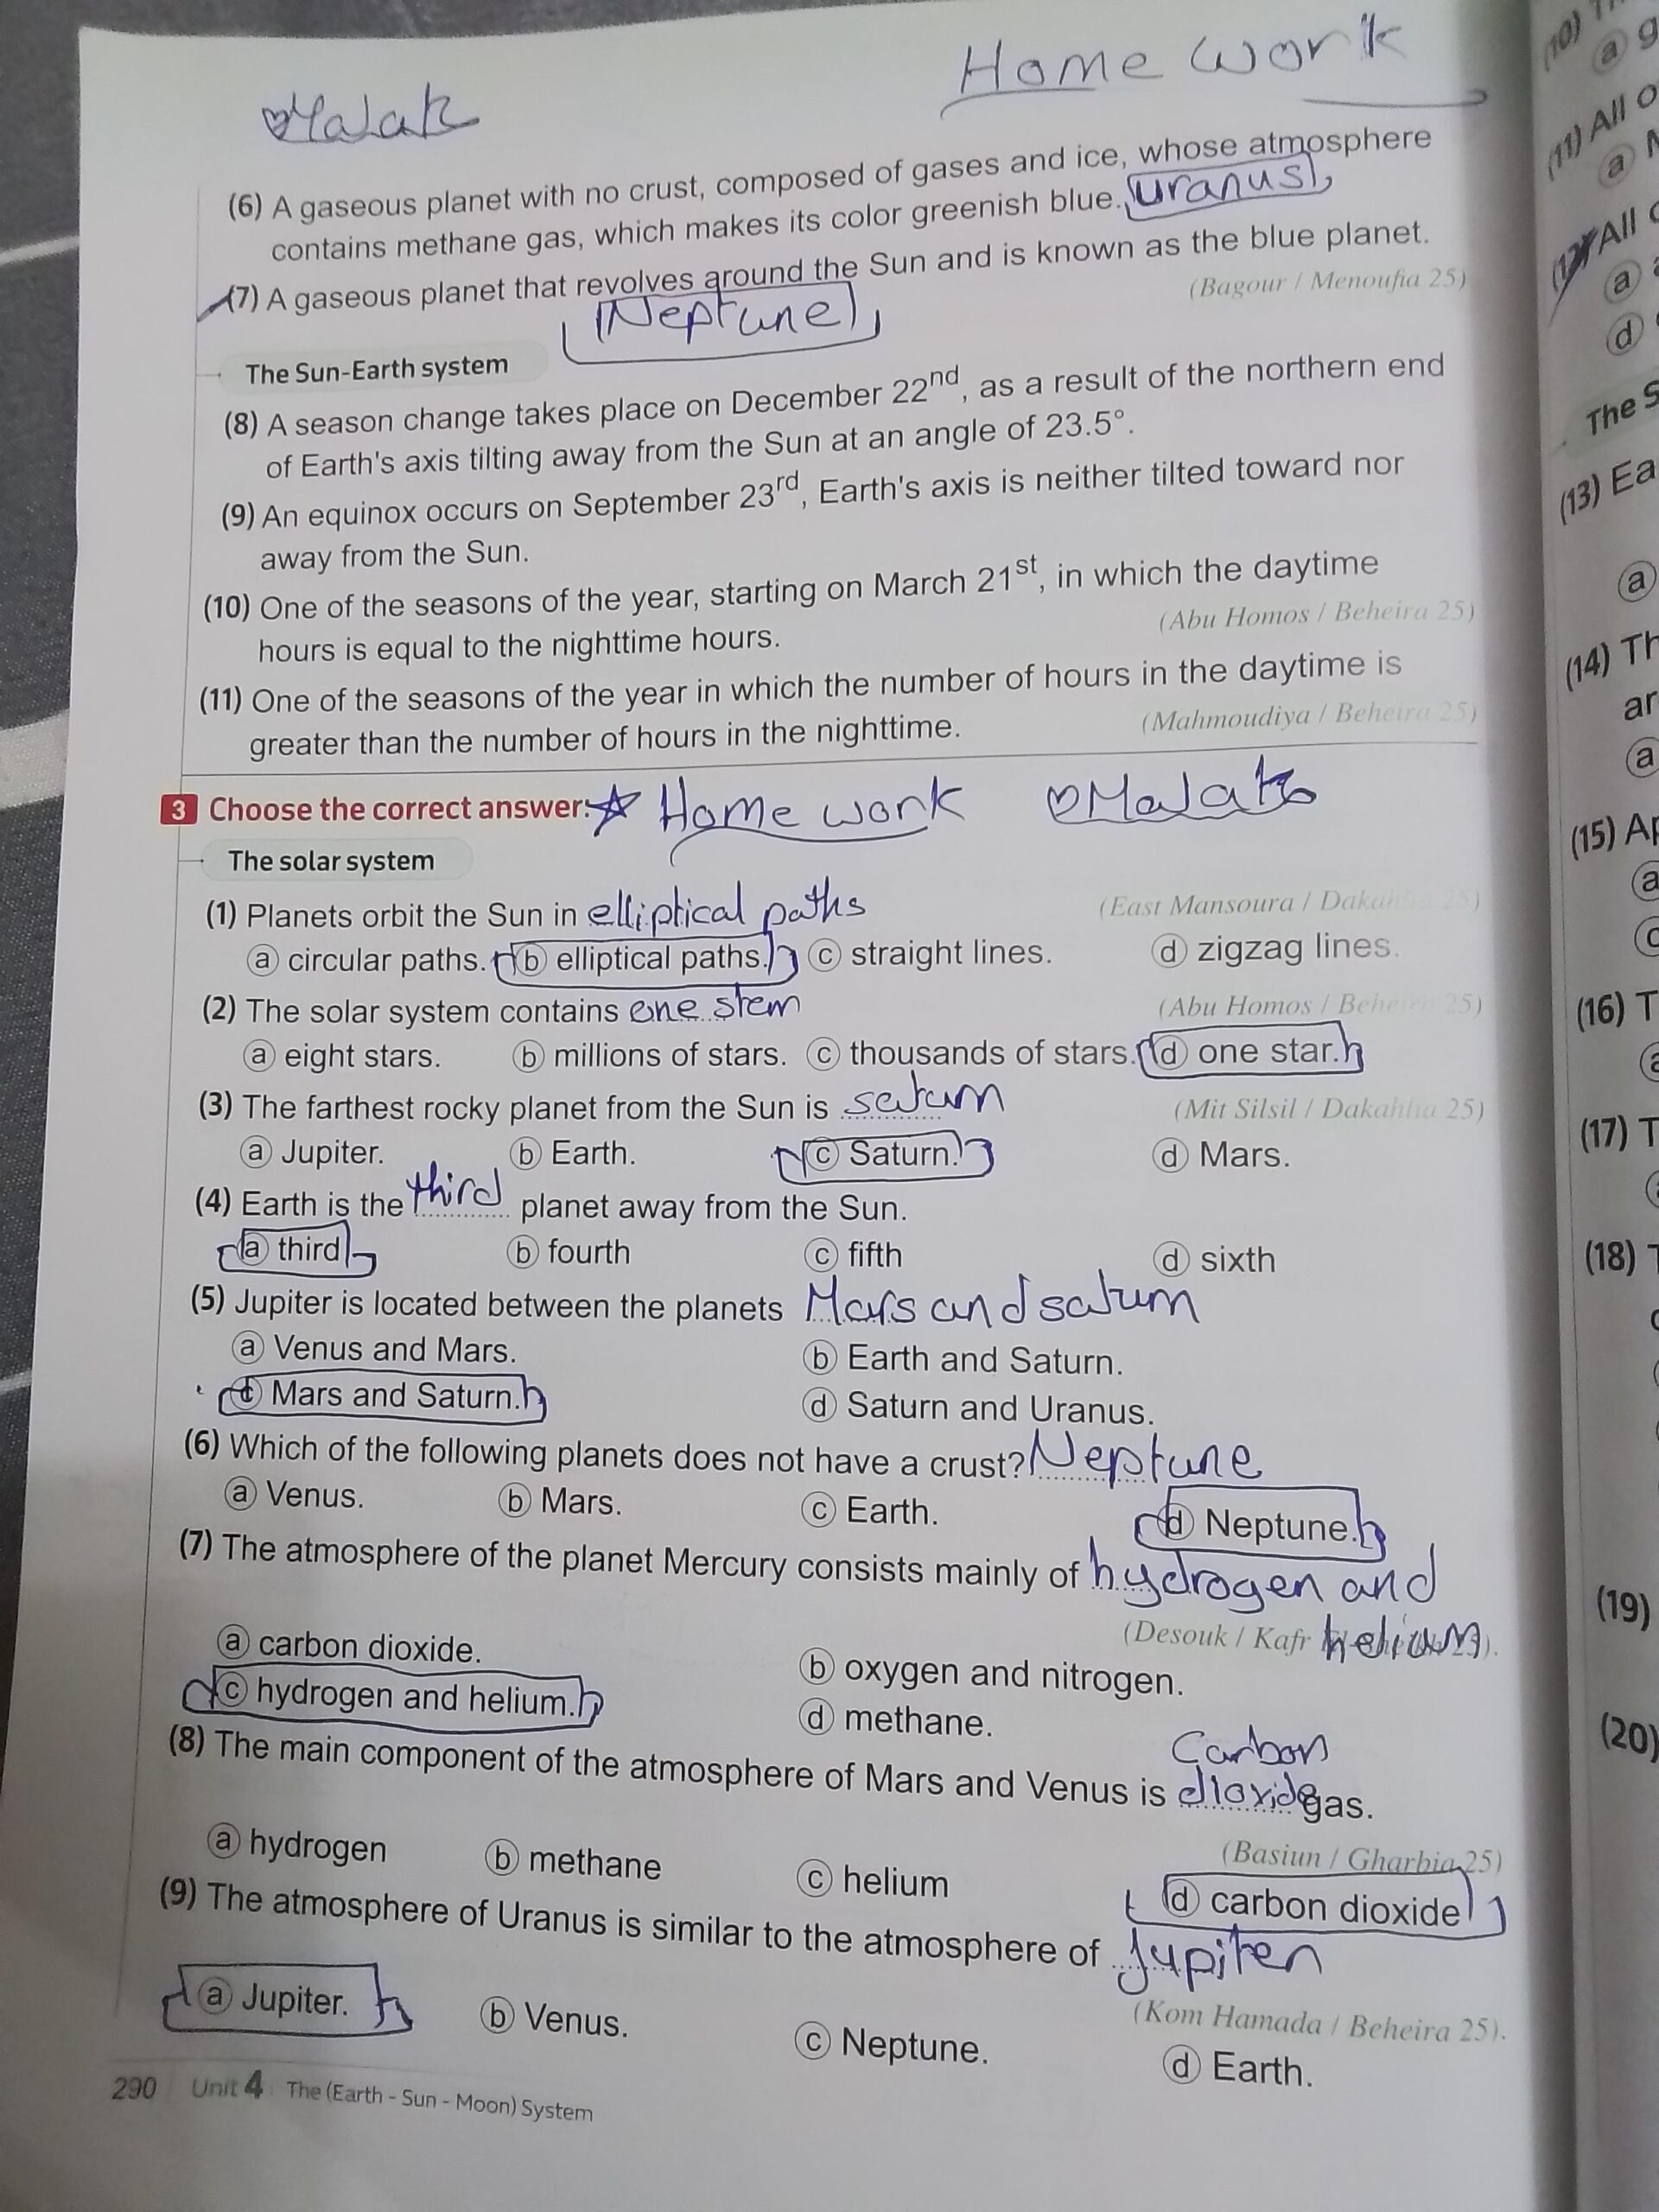 Home work
♡Malak
(6) A gaseous planet with no crust, composed of gases and ice, whose atmosphere
contains methane gas, which makes its color greenish blue. uranus
(7) A gaseous planet that revolves around the Sun and is known as the blue planet.
(Bagour / Menoufia 25)
Neptune
The Sun-Earth system
(8) A season change takes place on December 22nd, as a result of the northern end
of Earth's axis tilting away from the Sun at an angle of 23.5°.
(9) An equinox occurs on September 23rd, Earth's axis is neither tilted toward nor
away from the Sun.
(10) One of the seasons of the year, starting on March 21st, in which the daytime
hours is equal to the nighttime hours. (Abu Homos / Beheira 25)
(11) One of the seasons of the year in which the number of hours in the daytime is
greater than the number of hours in the nighttime. (Mahmoudiya / Beheira 25)
3 Choose the correct answer: Home work ♡Malak
The solar system
(1) Planets orbit the Sun in elliptical paths (East Mansoura / Dakahlia 25)
a circular paths. b elliptical paths. c straight lines. d zigzag lines.
(2) The solar system contains one (Abu Homos / Beheira 25)
a eight stars. b millions of stars. c thousands of stars. d one star.
(3) The farthest rocky planet from the Sun is saturn (Mit Silsil / Dakahlia 25)
a Jupiter. b Earth. c Saturn. d Mars.
(4) Earth is the third planet away from the Sun.
a third b fourth c fifth d sixth
(5) Jupiter is located between the planets Mars and saturn
a Venus and Mars. b Earth and Saturn.
c Mars and Saturn. d Saturn and Uranus.
(6) Which of the following planets does not have a crust? Neptune
a Venus. b Mars. c Earth. d Neptune.
(7) The atmosphere of the planet Mercury consists mainly of hydrogen and
(Desouk / Kafr helium 25).
a carbon dioxide. b oxygen and nitrogen.
c hydrogen and helium. d methane.
Carbon
(8) The main component of the atmosphere of Mars and Venus is dioxide gas.
(Basiun / Gharbia 25)
a hydrogen b methane c helium d carbon dioxide
(9) The atmosphere of Uranus is similar to the atmosphere of Jupiter
(Kom Hamada / Beheira 25).
a Jupiter. b Venus. c Neptune. d Earth.
290 Unit 4 The (Earth - Sun - Moon) System
(10)
a
(11) All
a
All
a
d
The
(13)
a
(14)
a
(15)
a
c
(16)
(17)
(18)
(19)
(20)